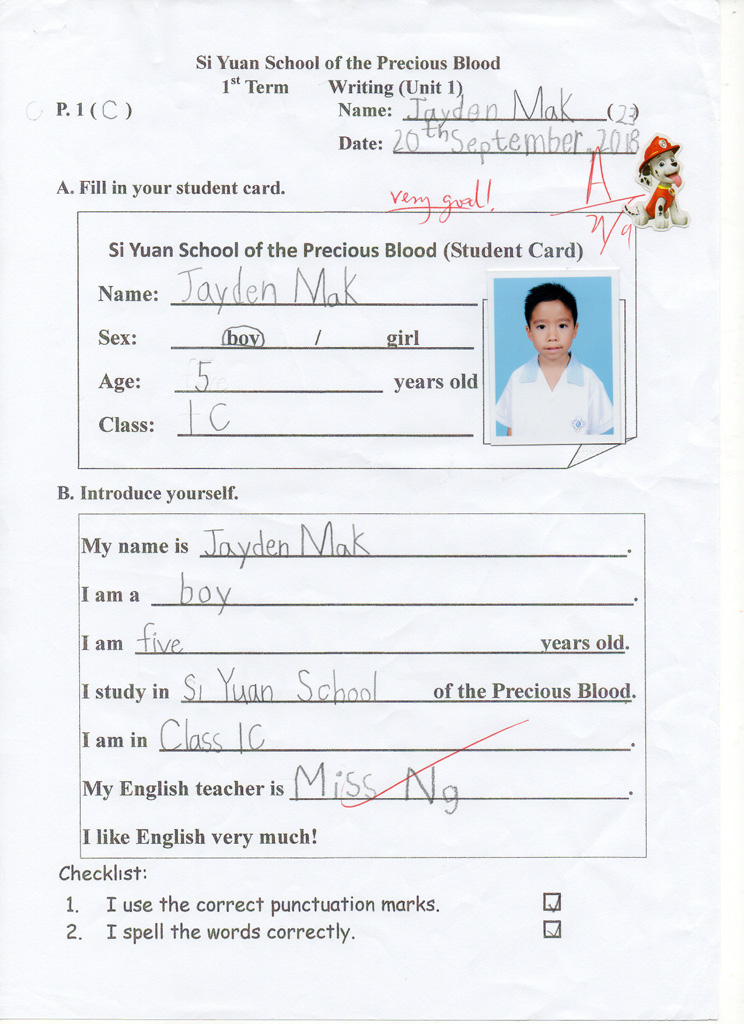 Si Yuan School of the Precious Blood
1st Term Writing (Unit 1)
P. 1 ( C ) Name: Jayden Mak (23)
Date: 20th September, 2018
A. Fill in your student card.
very good! A
Si Yuan School of the Precious Blood (Student Card)
Name: Jayden Mak
Sex: boy / girl
Age: 5 years old
Class: 1C
B. Introduce yourself.
My name is Jayden Mak.
I am a boy.
I am five years old.
I study in Si Yuan School of the Precious Blood.
I am in Class 1C.
My English teacher is Miss Ng.
I like English very much!
Checklist:
1. I use the correct punctuation marks.
2. I spell the words correctly.